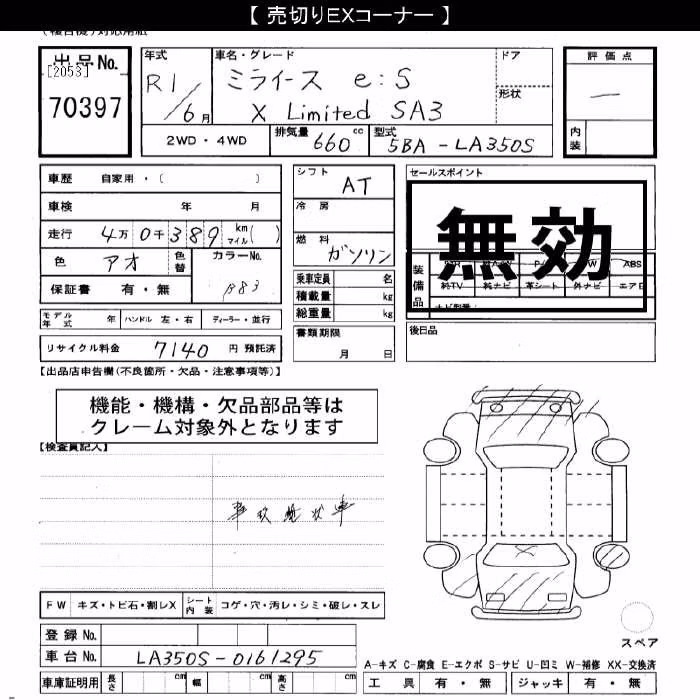 【 売切りEXコーナー 】
(複合機)対応用紙
出品No.
[2053]
70397
年式
R1/6月
車名・グレード
ミライース e:S
X Limited SA3
ドア
形状
評価点
一
内装
2WD・4WD
排気量 660 cc
型式 5BA-LA350S
車歴 自家用・( )
車検 年 月
走行 4万0千389 km マイル( )
色 アオ
色替
カラーNo.
B83
保証書 有・無
シフト AT
冷房
燃料 ガソリン
乗車定員 名
積載量 kg
総重量 kg
書類期限
月 日
セールスポイント
無効
装備品
ABS
純TV 純ナビ 革シート 外ナビ エアB
ナビ型番
後日品
モデル年式 年 ハンドル 左・右 ディーラー・並行
リサイクル料金 7140 円 預託済
【出品店申告欄(不良箇所・欠品・注意事項等)】
機能・機構・欠品部品等は
クレーム対象外となります
【検査員記入】
FW キズ・トビ石・割レX シート内装 コゲ・穴・汚レ・シミ・破レ・スレ
登録No.
車台No. LA350S-0161295
車庫証明用 長さ cm 幅 cm 高さ cm
スペア
A-キズ C-腐食 E-エクボ S-サビ U-凹ミ W-補修 XX-交換済
工具 有・無 ジャッキ 有・無